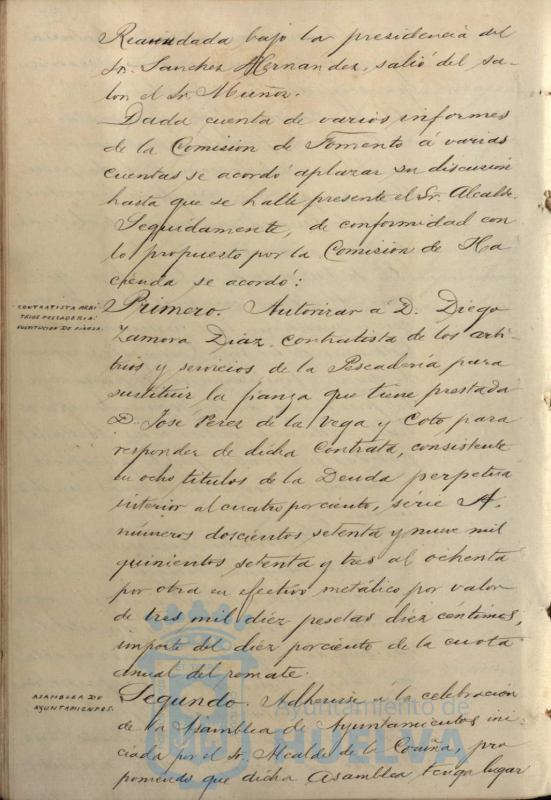 Reanudada bajo la presidencia del
Sr. Sanchez Hernandez, salió del sa-
lon el Sr. Muñoz.
Dada cuenta de varios informes
de la Comision de Fomento á varias
cuentas se acordó aplazar su discusion
hasta que se halle presente el Sr. Alcalde.
Seguidamente, de conformidad con
lo propuesto por la Comision de Ha
cienda se acordó:
CONTRATISTA ARBI-
TRIOS PESCADERIA:
SUSTITUCION DE FIANZA.
Primero. Autorizar á D. Diego
Zamora Diaz, contratista de los arbi-
trios y servicios de la Pescadería para
sustituir la fianza que tiene prestada
D. José Perez de la Vega y Coto para
responder de dicha contrata, consistente
en ocho titulos de la Deuda perpetua
interior al cuatro por ciento, série A,
números doscientos setenta y nueve mil
quinientos setenta y tres al ochenta
por otra en efectivo metálico por valor
de tres mil diez pesetas diez céntimos,
importe del diez por ciento de la cuota
anual del remate.
ASAMBLEA DE
AYUNTAMIENTOS.
Segundo. Adherirse á la celebración
de la Asamblea de Ayuntamientos ini-
ciada por el Sr. Alcalde de la Coruña, pro
poniendo que dicha Asamblea tenga lugar
Ayuntamiento de
HUELVA